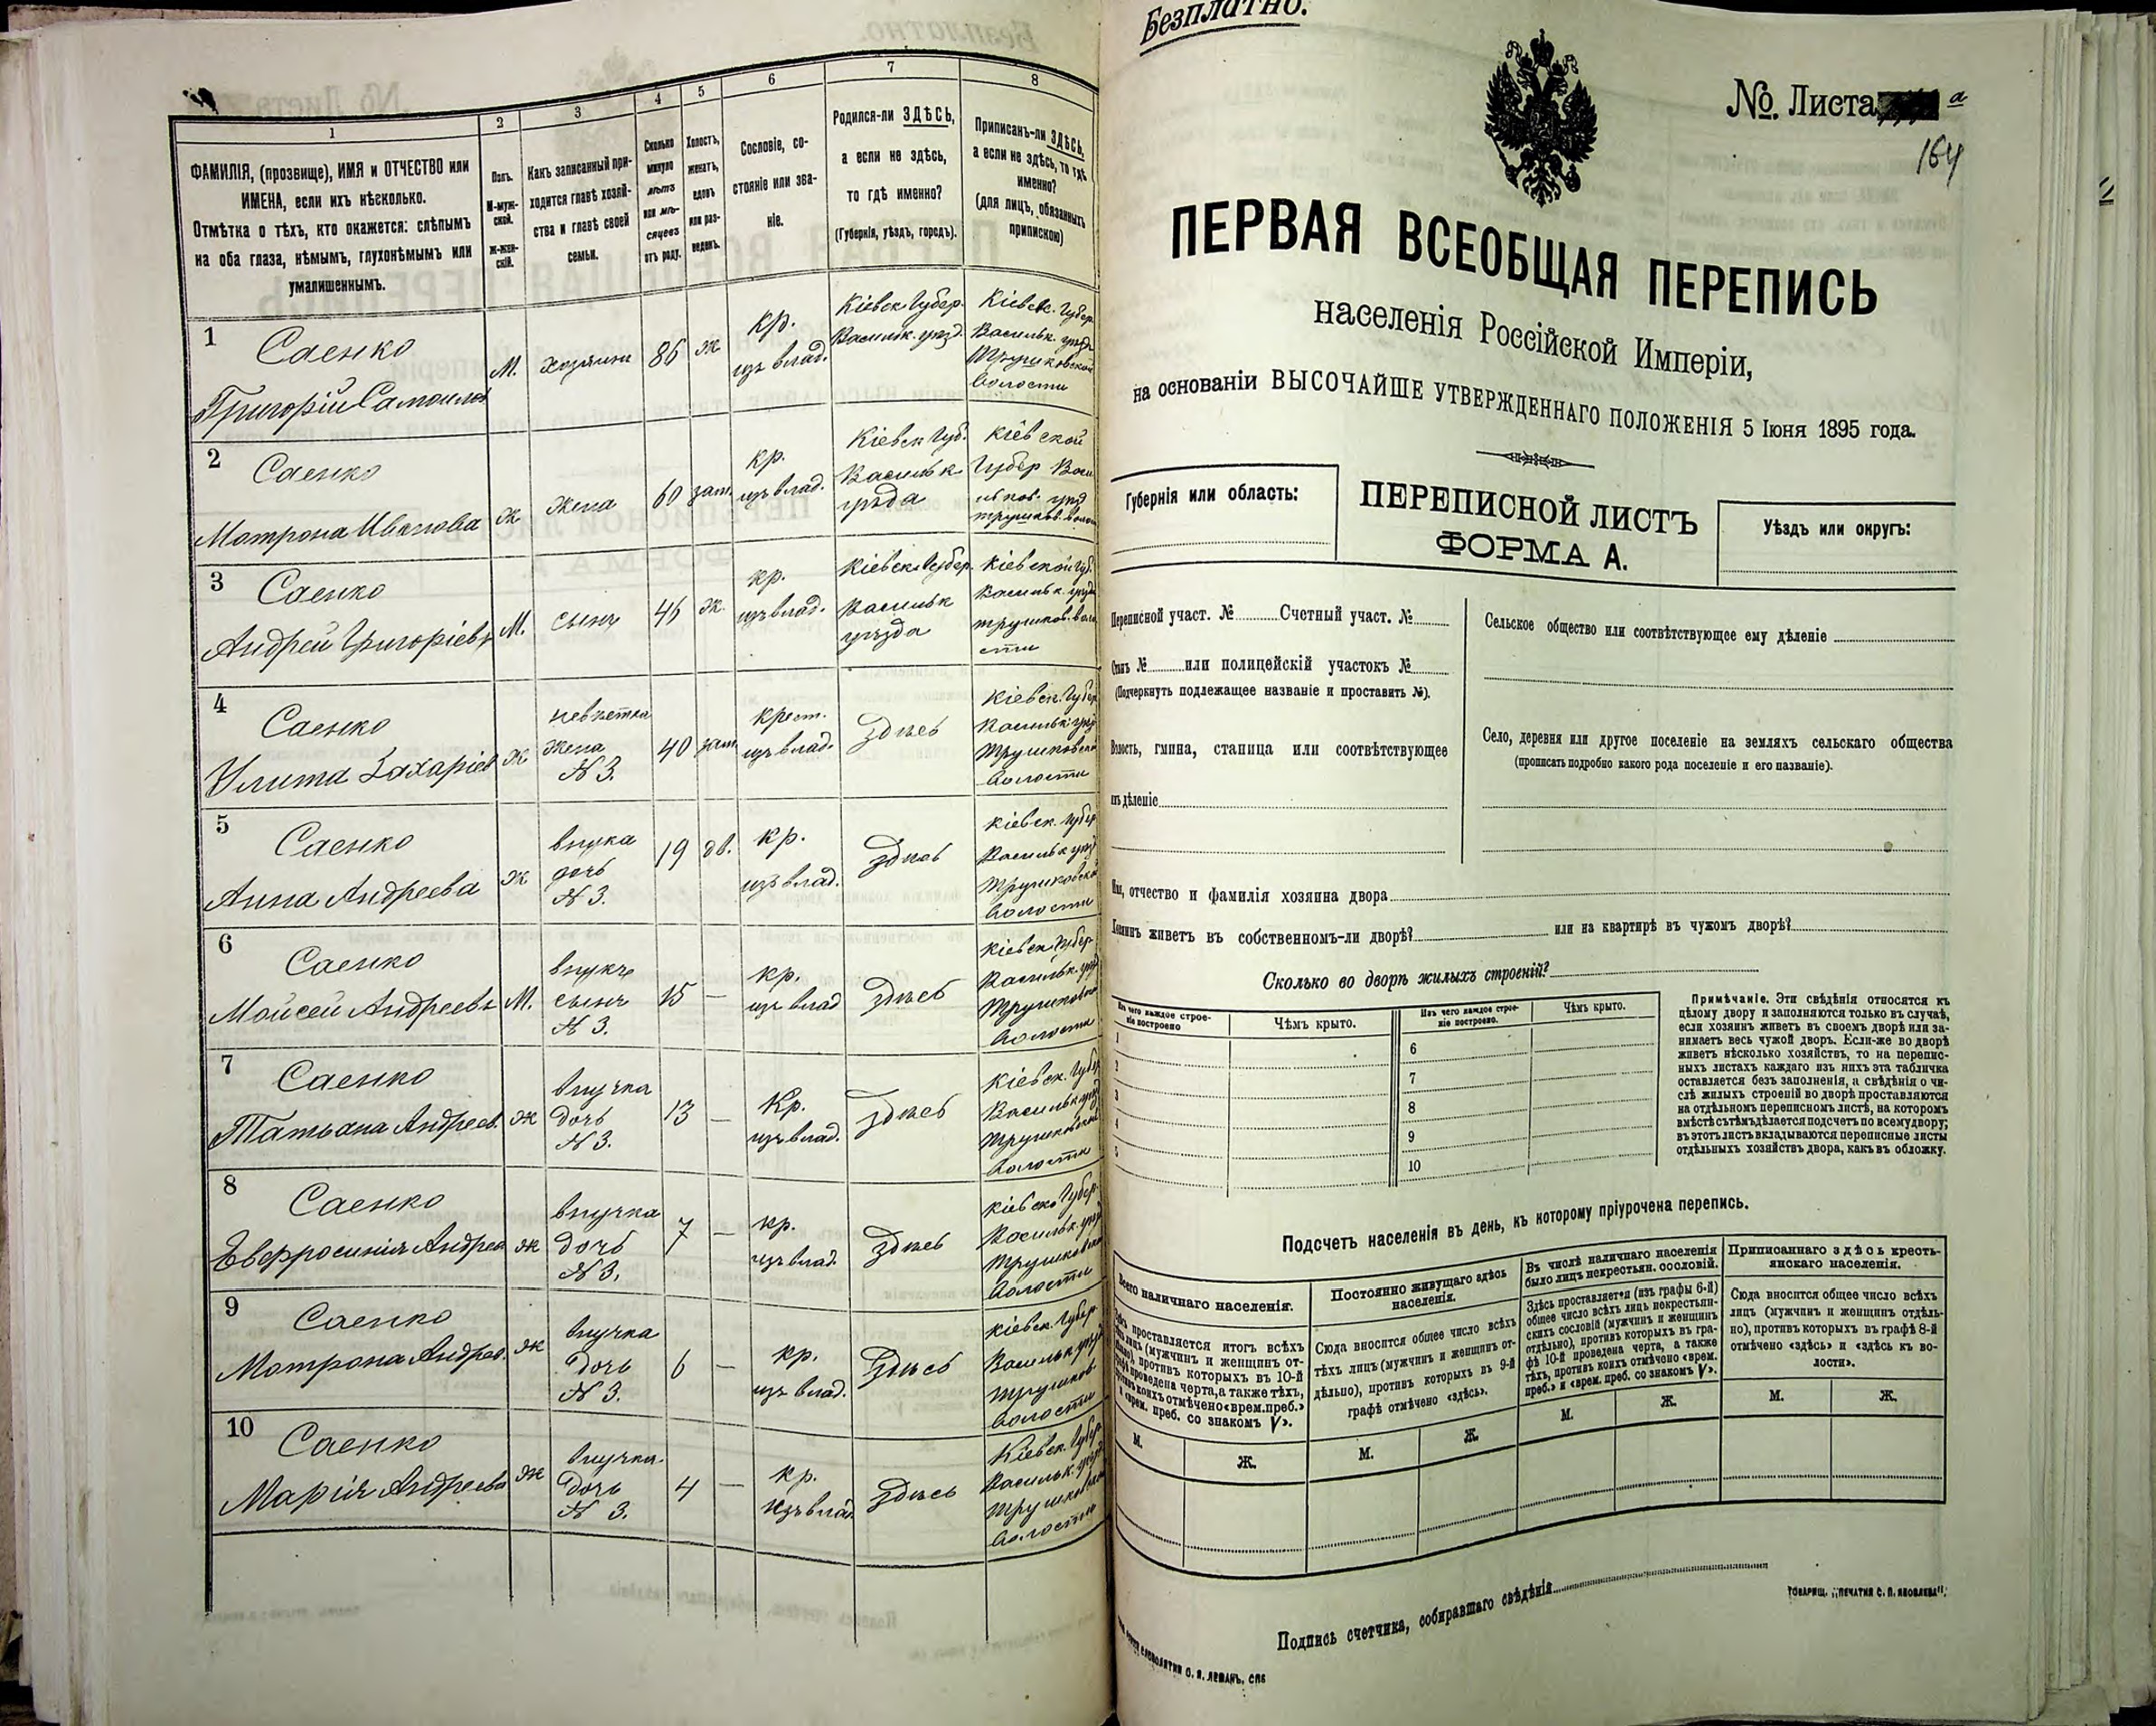 1
2
3
4
5
6
7
8
ФАМИЛІЯ, (прозвище), ИМЯ и ОТЧЕСТВО или
ИМЕНА, если ихъ нѣсколько.
Отмѣтка о тѣхъ, кто окажется: слѣпымъ
на оба глаза, нѣмымъ, глухонѣмымъ или
умалишеннымъ.
Полъ.
М-муж-
ской.
Ж-жен-
скій.
Какъ записанный при-
ходится главѣ хозяй-
ства и главѣ своей
семьи.
Сколько
минуло
лѣтъ
или мѣ-
сяцевъ
отъ роду.
Холостъ,
женатъ,
вдовъ
или раз-
веденъ.
Сословіе, со-
стояніе или зва-
ніе.
Родился-ли ЗДѢСЬ,
а если не здѣсь,
то гдѣ именно?
(Губернія, уѣздъ, городъ).
Приписанъ-ли ЗДѢСЬ,
а если не здѣсь, то гдѣ
именно?
(для лицъ, обязанныхъ
припискою)
1
Саенко
Григорій Самоилов
М.
хозяинъ
86
ж
кр.
изъ влад.
Кіевск. Губер.
Васильк. уѣзд.
Кіевск. Губер
Васильк. уѣзд
Трушковской
волости
2
Саенко
Мотрона Иванова
ж
жена
60
зам.
кр.
изъ влад.
Кіевск Губ.
Васильк
уѣзда
Кіевской
Губер Васи
льков. уѣзд
трушков. волос
3
Саенко
Андрей Григоріевъ
М.
сынъ
46
ж.
кр.
изъ влад.
Кіевск. Губер.
Васильк
уѣзда
Кіевской Губ.
Васильк. уѣзд
трушков. воло
сти
4
Саенко
Улита Захаріев
ж
невѣстка
жена
N 3.
40
зам
крест.
изъ влад.
здѣсь
Кіевск. Губер
Васильк. уѣзд
Трушковской
волости
5
Саенко
Анна Андреева
ж
внука
дочь
N 3.
19
дв.
кр.
изъ влад.
здѣсь
Кіевск. Губер
Васильк уѣзд
Трушковской
волости
6
Саенко
Мойсей Андреевъ
М.
внукъ
сынъ
N 3.
15
—
кр.
изъ влад
здѣсь
Кіевск Губер
Васильк. уѣзд
Трушковской
волости
7
Саенко
Татьана Андреев.
ж
внучка
дочь
N 3.
13
—
Кр.
изъ влад.
здѣсь
Кіевск. Губер
Васильк уѣзд
Трушковской
волости
8
Саенко
Евфросинія Андрев
ж
внучка
дочь
N 3.
7
—
кр.
изъ влад.
здѣсь
Кіевско Губер.
Васильк. уѣзд
Трушковской
волости
9
Саенко
Мотрона Андрев.
ж
внучка
дочь
N 3.
6
—
кр.
изъ влад.
здѣсь
Кіевск. Губер
Васильк уѣзд
Трушков
волости
10
Саенко
Марія Андреева
ж
внучка
дочь
N 3.
4
—
кр.
изъ влад
здѣсь
Кіевск. Губер
Васильк. уѣзд
Трушковской
волости
Безплатно.
№. Листа а
164
ПЕРВАЯ ВСЕОБЩАЯ ПЕРЕПИСЬ
населенія Россійской Имперіи,
на основаніи ВЫСОЧАЙШЕ УТВЕРЖДЕННАГО ПОЛОЖЕНІЯ 5 Іюня 1895 года.
Губернія или область:
ПЕРЕПИСНОЙ ЛИСТЪ
ФОРМА А.
Уѣздъ или округъ:
Переписной участ. № Счетный участ. №
Станъ № или полицейскій участокъ №
(Подчеркнуть подлежащее названіе и проставить №).
Волость, гмина, станица или соотвѣтствующее
имъ дѣленіе
Сельское общество или соотвѣтствующее ему дѣленіе
Село, деревня или другое поселеніе на земляхъ сельскаго общества
(прописать подробно какого рода поселеніе и его названіе).
Имя, отчество и фамилія хозяина двора
Хозяинъ живетъ въ собственномъ-ли дворѣ? или на квартирѣ въ чужомъ дворѣ?
Сколько во дворѣ жилыхъ строеній?
Изъ чего каждое строе-
ніе построено
Чѣмъ крыто.
Изъ чего каждое строе-
ніе построено.
Чѣмъ крыто.
1
2
3
4
5
6
7
8
9
10
Примѣчаніе. Эти свѣдѣнія относятся къ
цѣлому двору и заполняются только въ случаѣ,
если хозяинъ живетъ въ своемъ дворѣ или за-
нимаетъ весь чужой дворъ. Если-же во дворѣ
живетъ нѣсколько хозяйствъ, то на перепис-
ныхъ листахъ каждаго изъ нихъ эта табличка
оставляется безъ заполненія, а свѣдѣнія о чи-
слѣ жилыхъ строеній во дворѣ проставляются
на отдѣльномъ переписномъ листѣ, на которомъ
вмѣстѣ съ тѣмъ дѣлается подсчетъ по всему двору;
въ этотъ листъ вкладываются переписные листы
отдѣльныхъ хозяйствъ двора, какъ въ обложку.
Подсчетъ населенія въ день, къ которому пріурочена перепись.
Всего наличнаго населенія.
Здѣсь проставляется итогъ всѣхъ
лицъ (мужчинъ и женщинъ от-
дѣльно) противъ которыхъ въ 10-й
графѣ проведена черта, а также тѣхъ,
противъ коихъ отмѣчено «врем. преб.»
и «врем. преб. со знакомъ V».
М.
Ж.
Постоянно живущаго здѣсь
населенія.
Сюда вносится общее число всѣхъ
тѣхъ лицъ (мужчинъ и женщинъ от-
дѣльно), противъ которыхъ въ 9-й
графѣ отмѣчено «здѣсь».
М.
Ж.
Въ числѣ наличнаго населенія
было лицъ некрестьян. сословій.
Здѣсь проставляется (изъ графы 6-й)
общее число всѣхъ лицъ некрестьян-
скихъ сословій (мужчинъ и женщинъ
отдѣльно), противъ которыхъ въ гра-
фѣ 10-й проведена черта, а также
тѣхъ, противъ коихъ отмѣчено «врем.
преб.» и «врем. преб. со знакомъ V».
М.
Ж.
Приписаннаго здѣсь кресть-
янскаго населенія.
Сюда вносится общее число всѣхъ
лицъ (мужчинъ и женщинъ отдѣль-
но), противъ которыхъ въ графѣ 8-й
отмѣчено «здѣсь» и «здѣсь къ во-
лости».
М.
Ж.
Подпись счетчика, собиравшаго свѣдѣнія
ТОВАРИЩ. „ПЕЧАТНЯ С. П. ЯКОВЛЕВА".
СЛОВОЛИТНИ О. И. ЛЕМАНЪ, СПБ